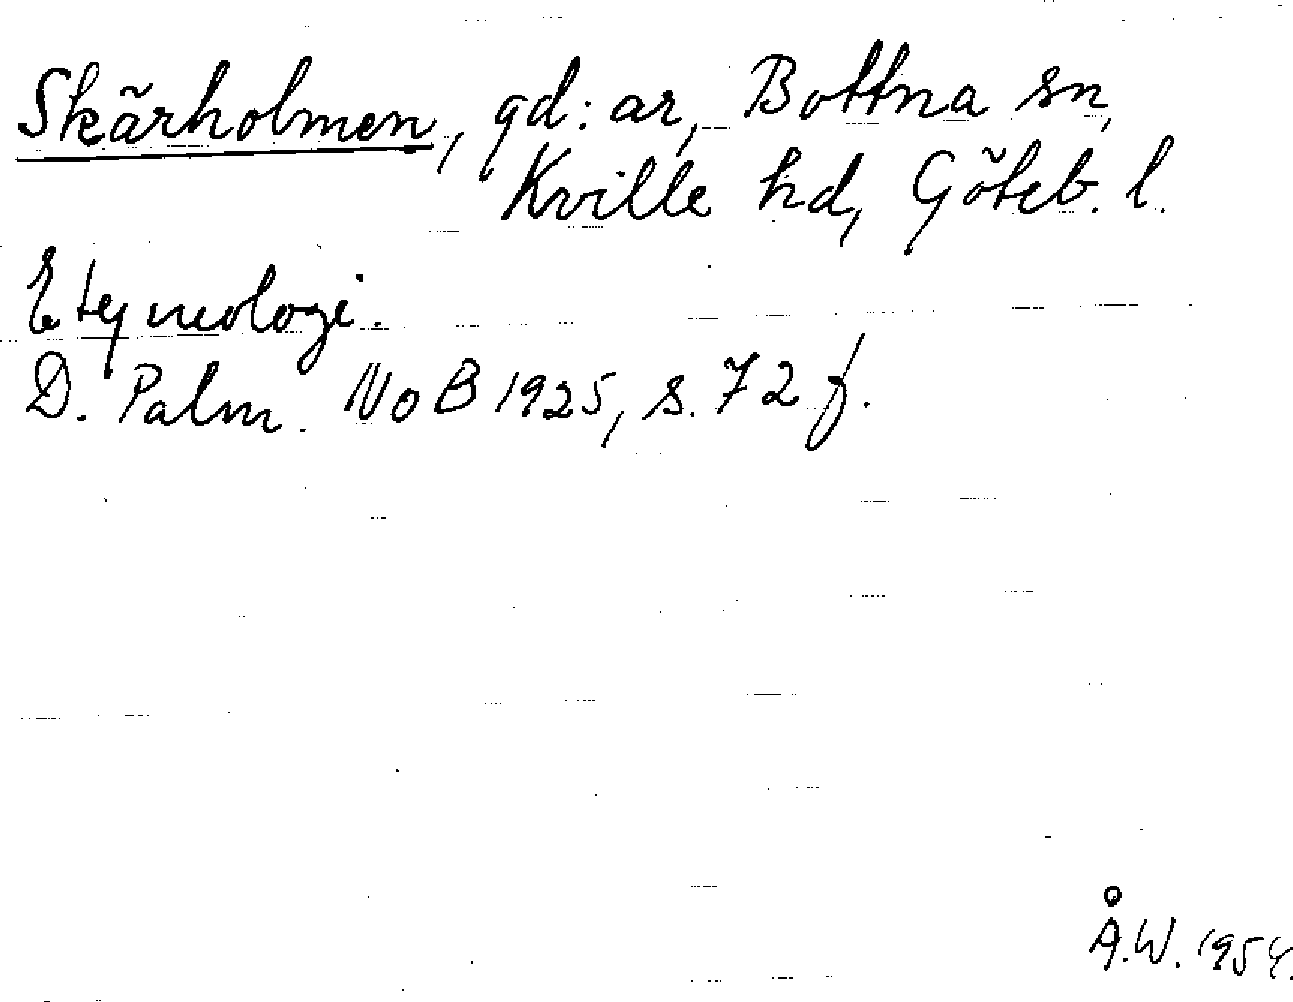 Skärholmen, gd:ar, Bottna sn,
Kville hd, Göteb. l.
Etymologi.
D. Palm. NoB 1925, s. 72 f.
Å.W. 1954.